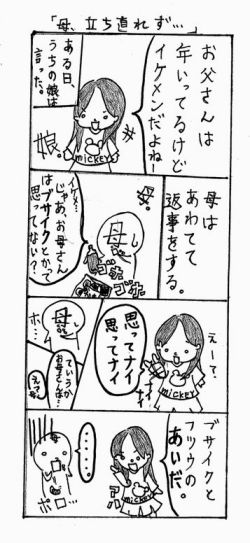 「母、立ち直れず…」
お父さんは
年いってるけど
イケメンだよねー
ある日、
うちの娘は
言った。
娘
mickey
母は
あわてて
返事をする。
母
イケメ…
じゃあ、お母さん
はブサイクとかって
思ってない？
母
ゴホ
ゴホ
えーて、
思ってナイ
思ってナイ
mickey
母
ホ…
ていうか
お母さんは…
え？
ブサイクと
フツウの
あいだ。
mickey
アハ
・・・・・
母
ポロ…